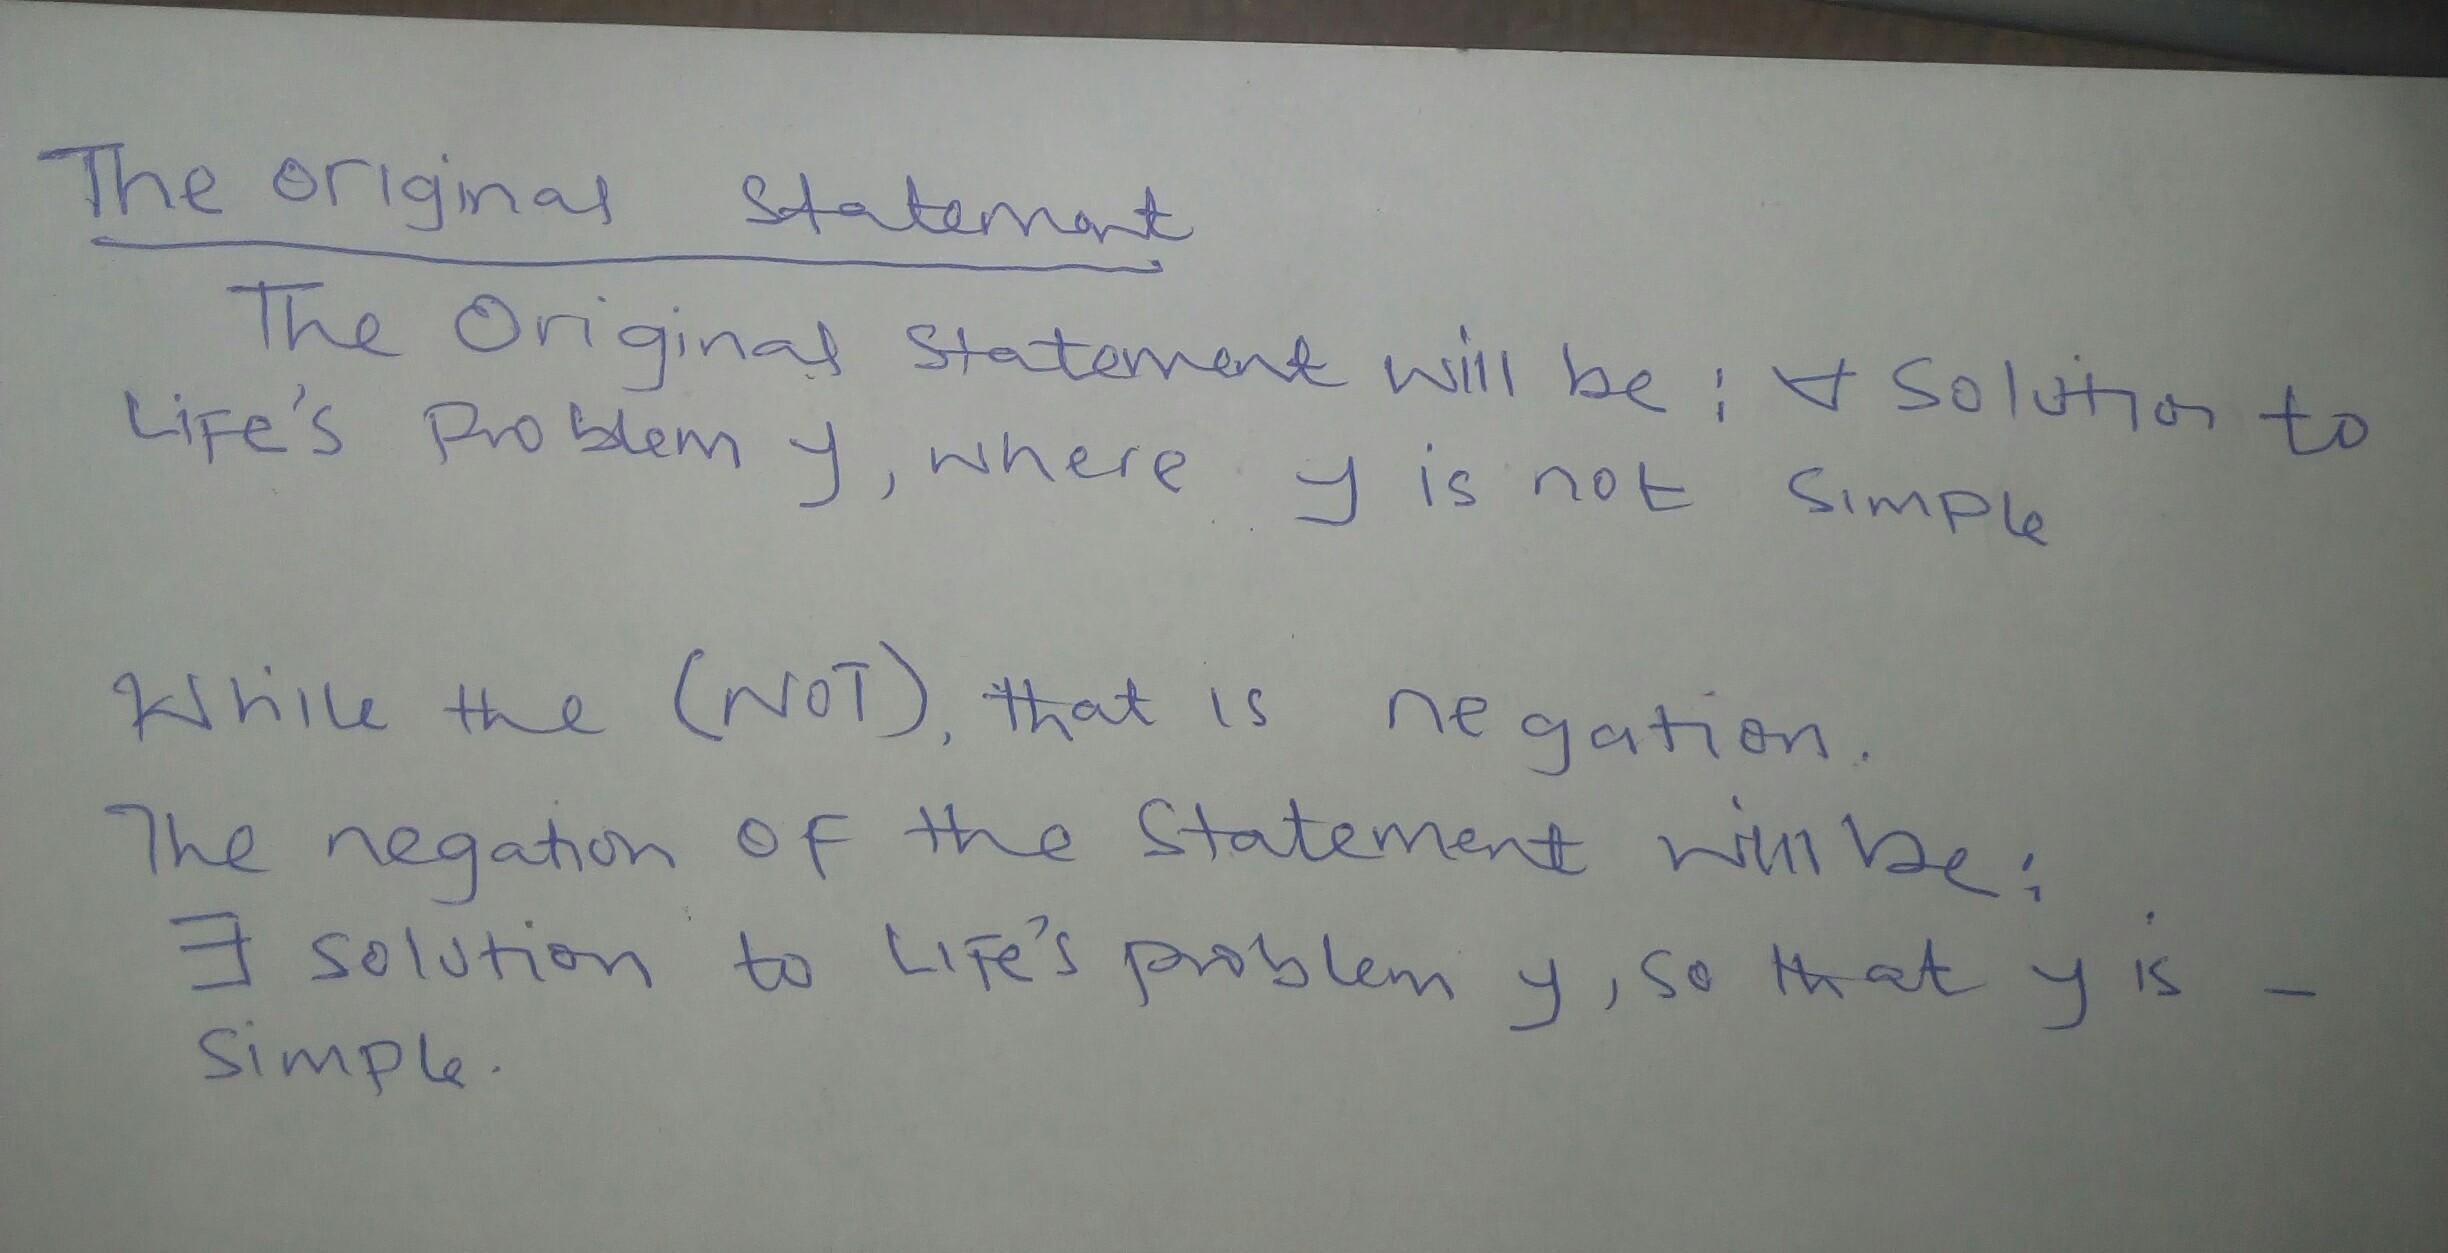 The original Statement
The Original Statement will be; ∀ Solution to
Life's Problem y, where y is not Simple
While the (NOT), that is negation.
The negation of the Statement will be;
∃ solution to Life's problem y, so that y is -
Simple.